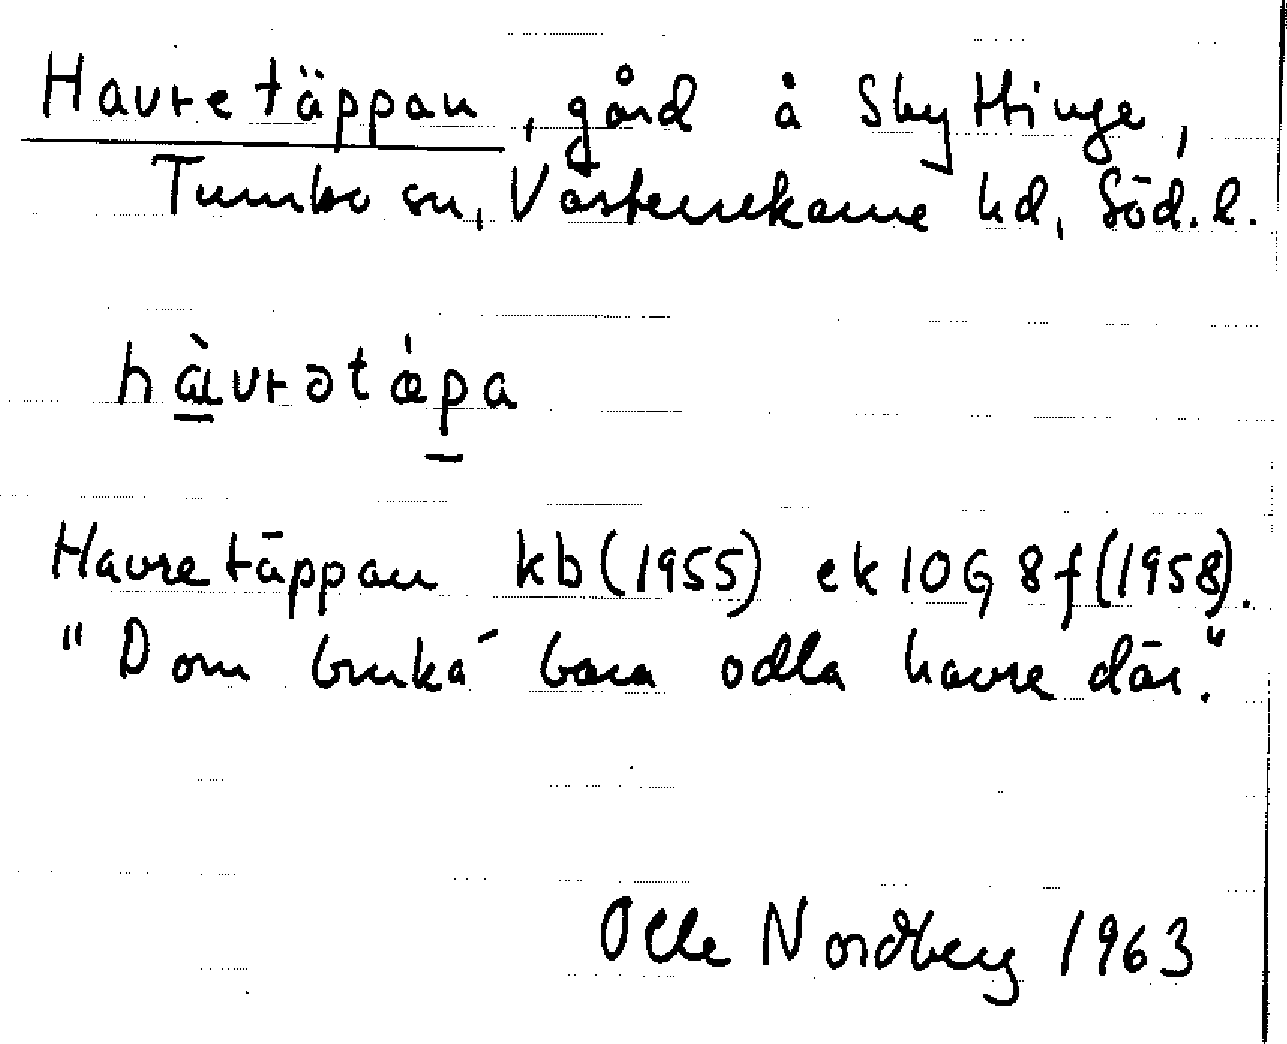 Havretäppan, gård å Skyttinge,
Tumbo sn, Västerrekarne hd, Söd. l.
hàvrətǽpa
Havretäppan kb (1955) ek 10G 8f (1958).
"Dom bruka´ bara odla havre där."
Olle Nordberg 1963